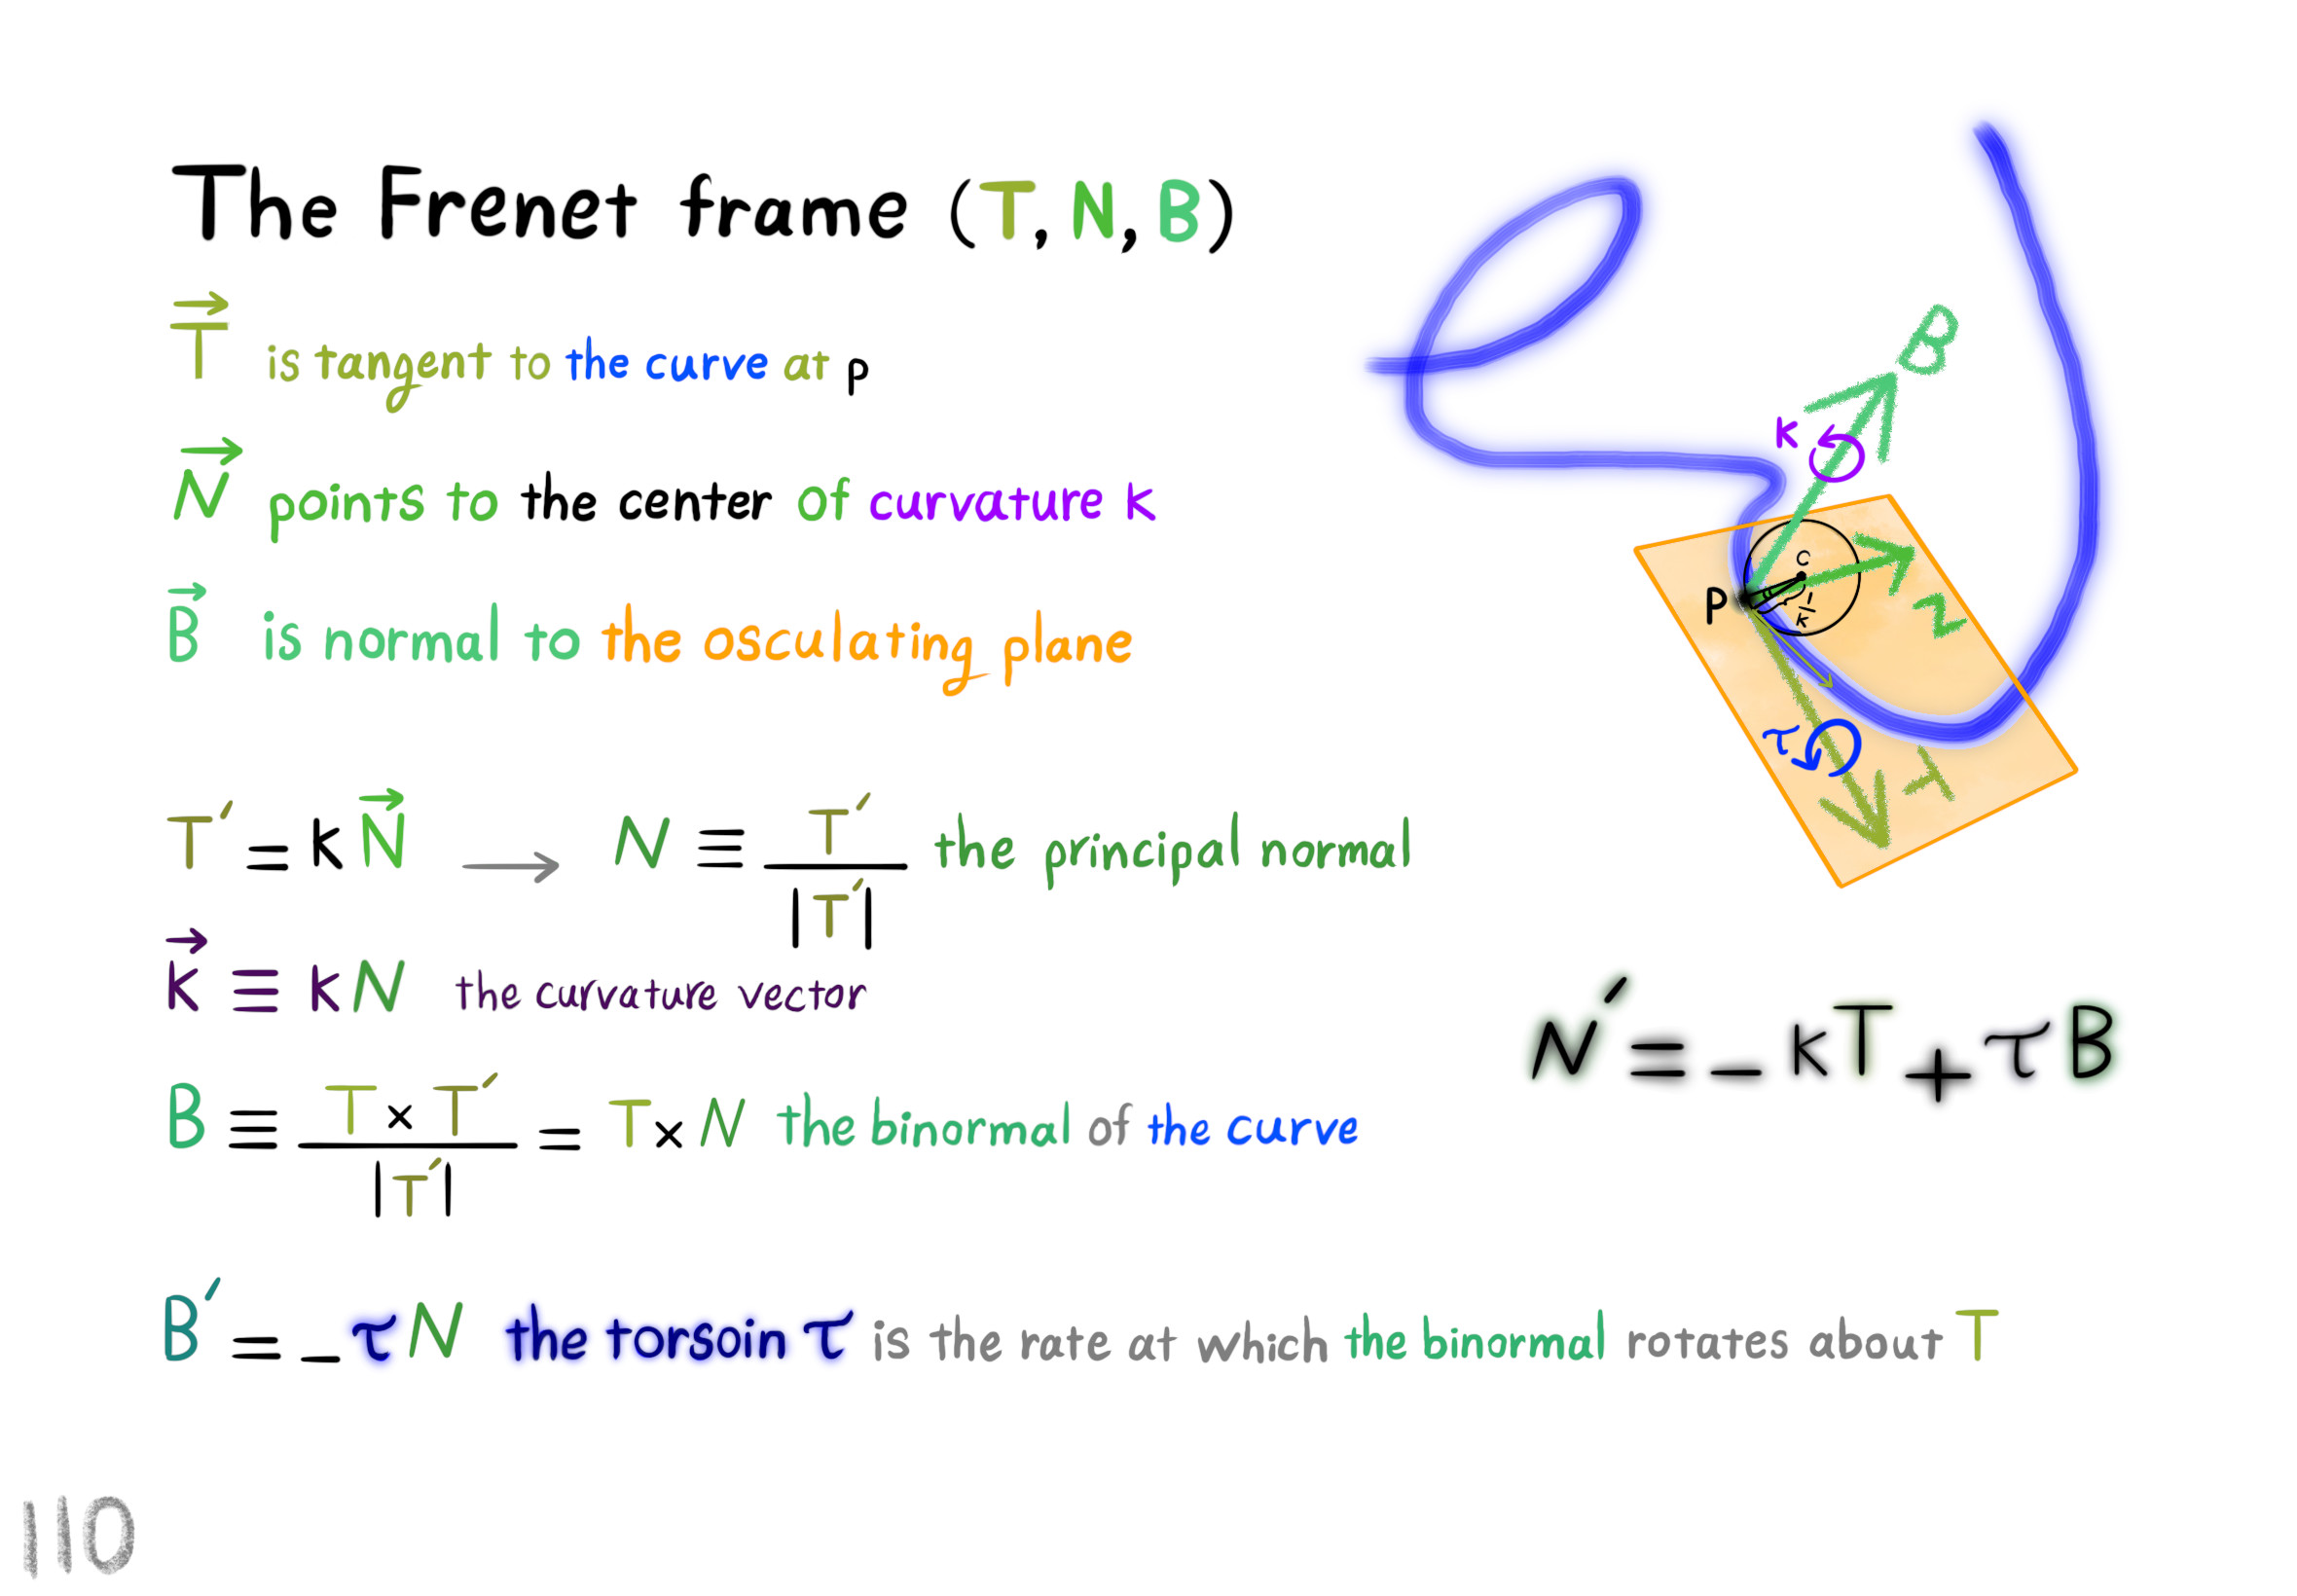 The Frenet frame (T, N, B)
T is tangent to the curve at p
N points to the center of curvature k
B is normal to the osculating plane
T′ = k N → N ≡ T′ / |T′| the principal normal
k ≡ k N the curvature vector
B ≡ T × T′ / |T′| = T × N the binormal of the curve
B′ = – τ N the torsoin τ is the rate at which the binormal rotates about T
B
k
c
P
1/k
N
τ
T
N′ = – kT + τ B
110